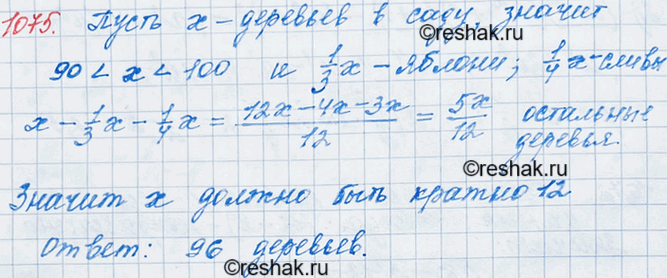 1075. Пусть x - деревьев в саду, значит
90 < x < 100 и 1/3 x - яблони; 1/4 x - сливы
x - 1/3 x - 1/4 x = (12x - 4x - 3x)/12 = 5x/12 остальные
деревья.
Значит x должно быть кратно 12
Ответ: 96 деревьев.
reshak.ru